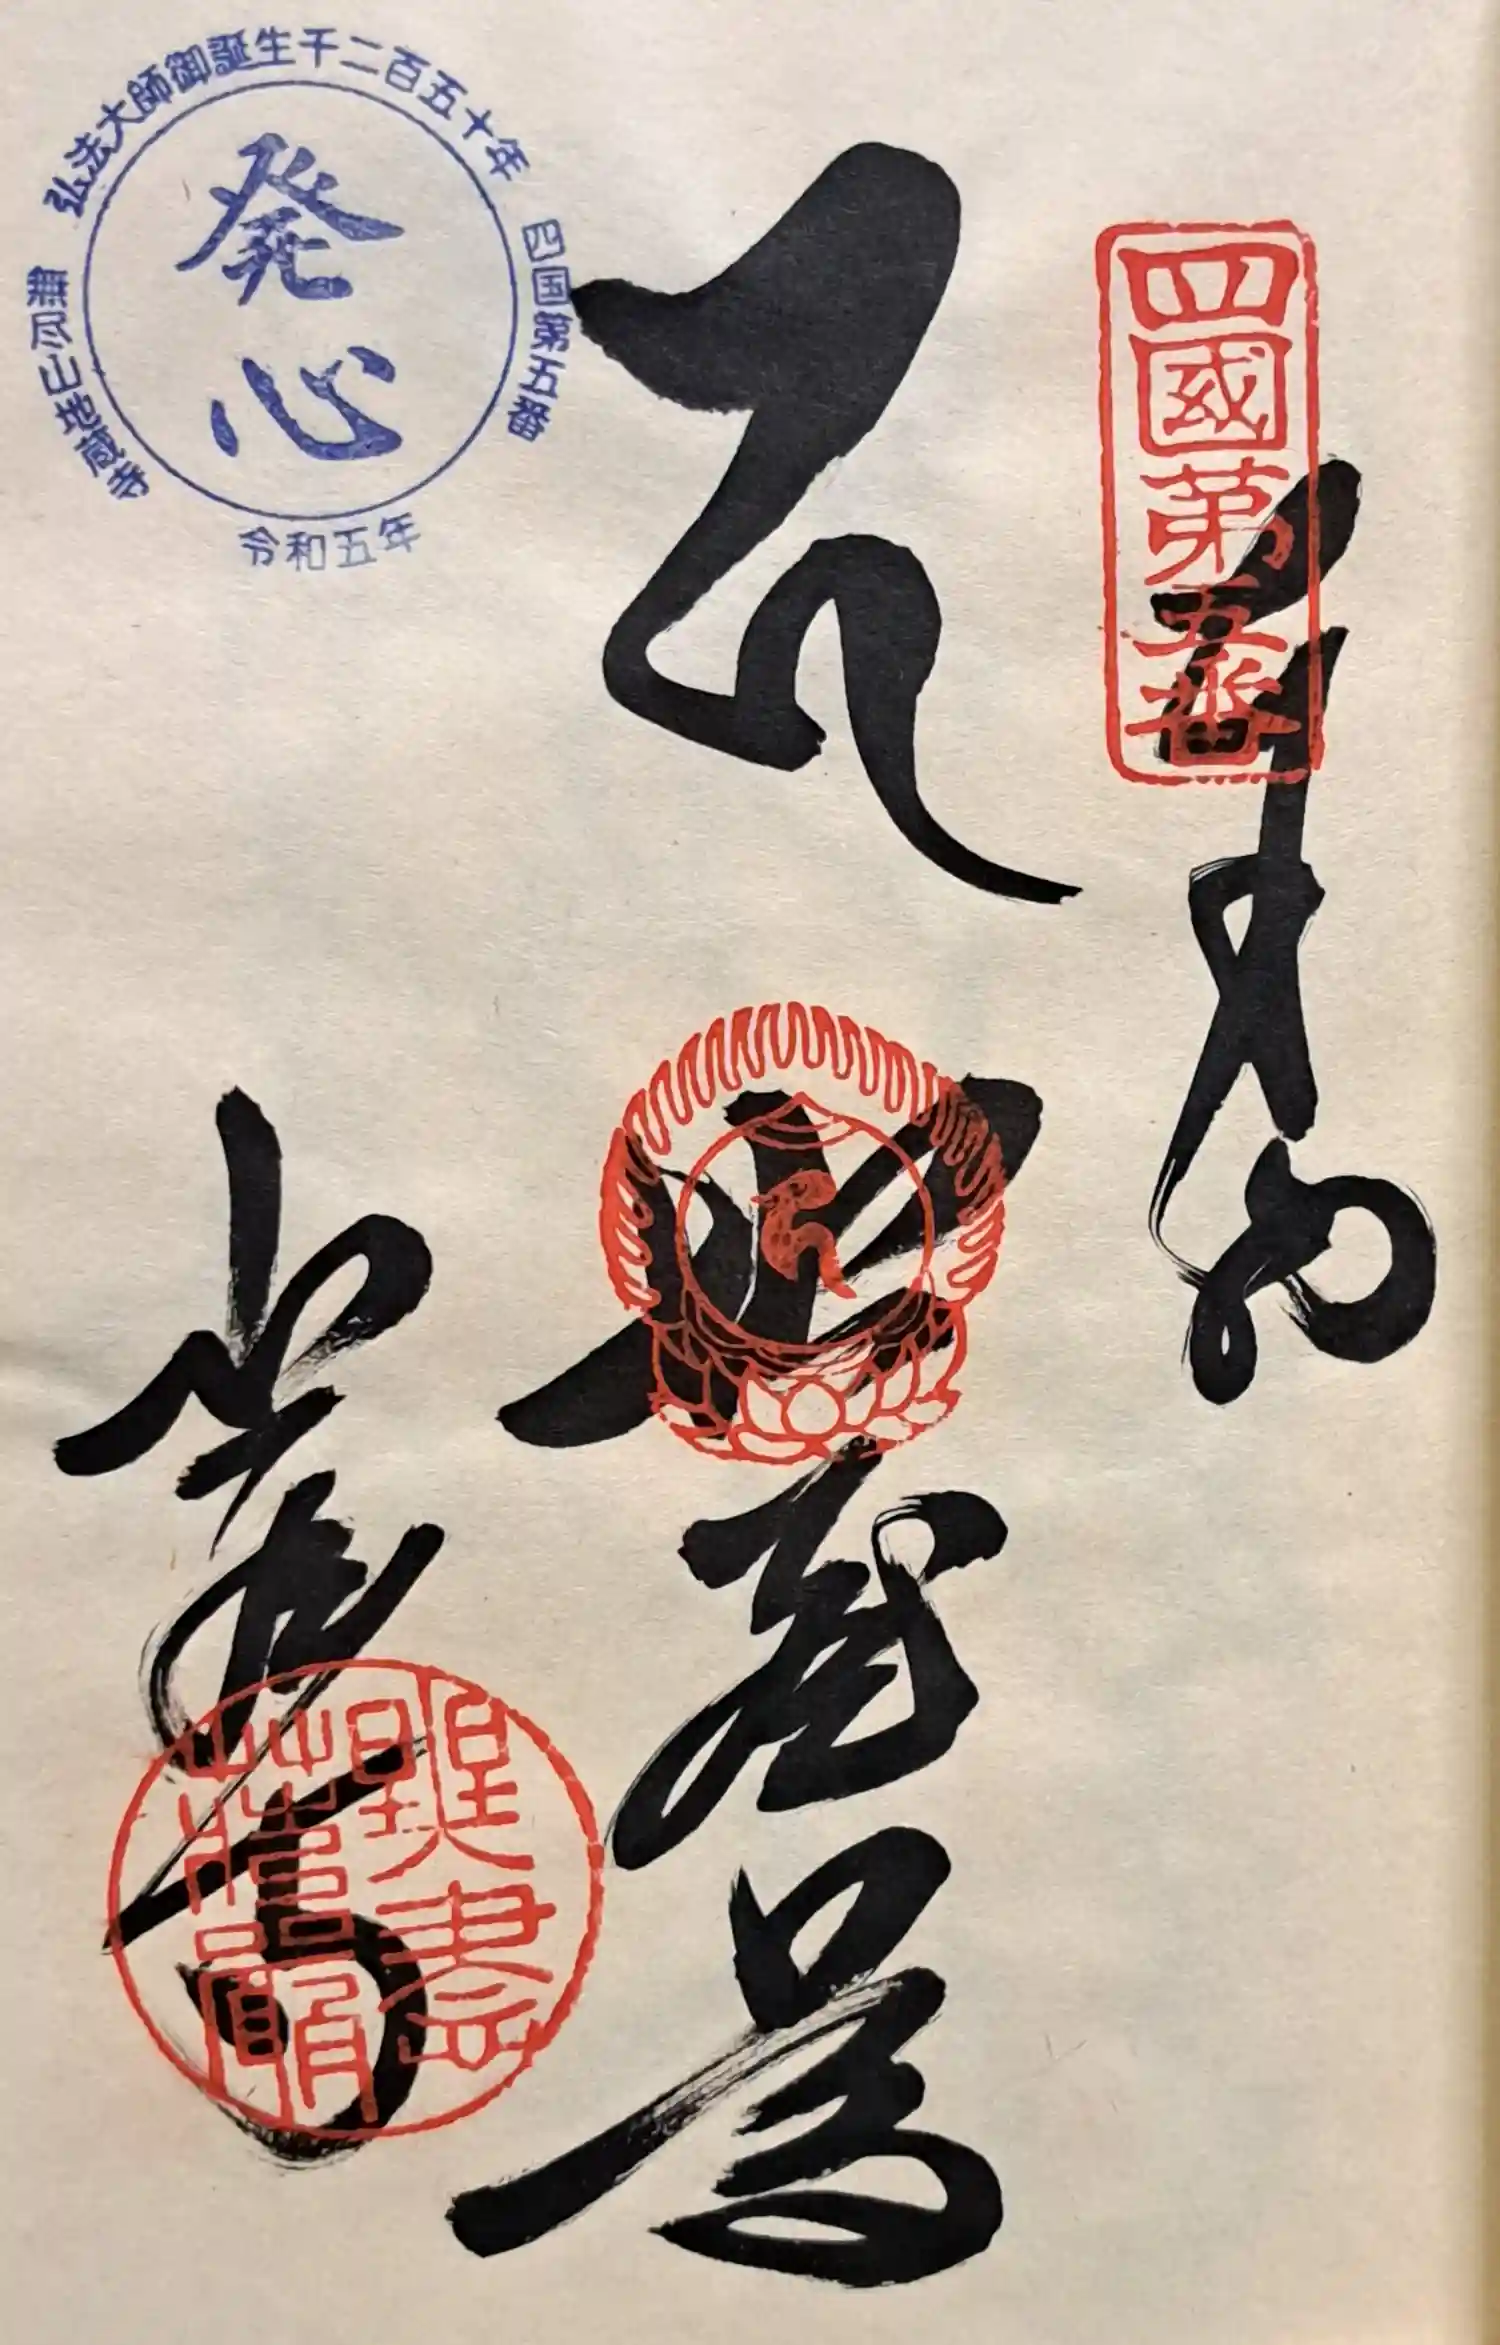 四國第五番
奉納
地蔵尊
地蔵寺
弘法大師御誕生千二百五十年
四国第五番
発心
無尽山地蔵寺
令和五年